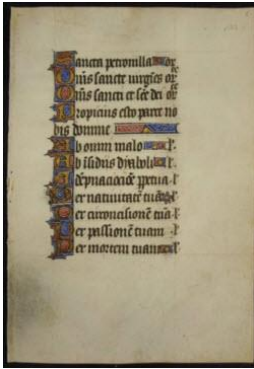 Sancta petronilla or
Om̄s sancte virgīes or
Om̄s sancti et scē dei or
Propicius esto parce no
bis domine
Ab omni malo l.
Ab isidiis dyaboli l.
A dāpnacioē ppetua l.
Per natiuitatē tuā l.
Per circoncisionē tuā l.
Per passionē tuam l.
Per mortem tuam l.